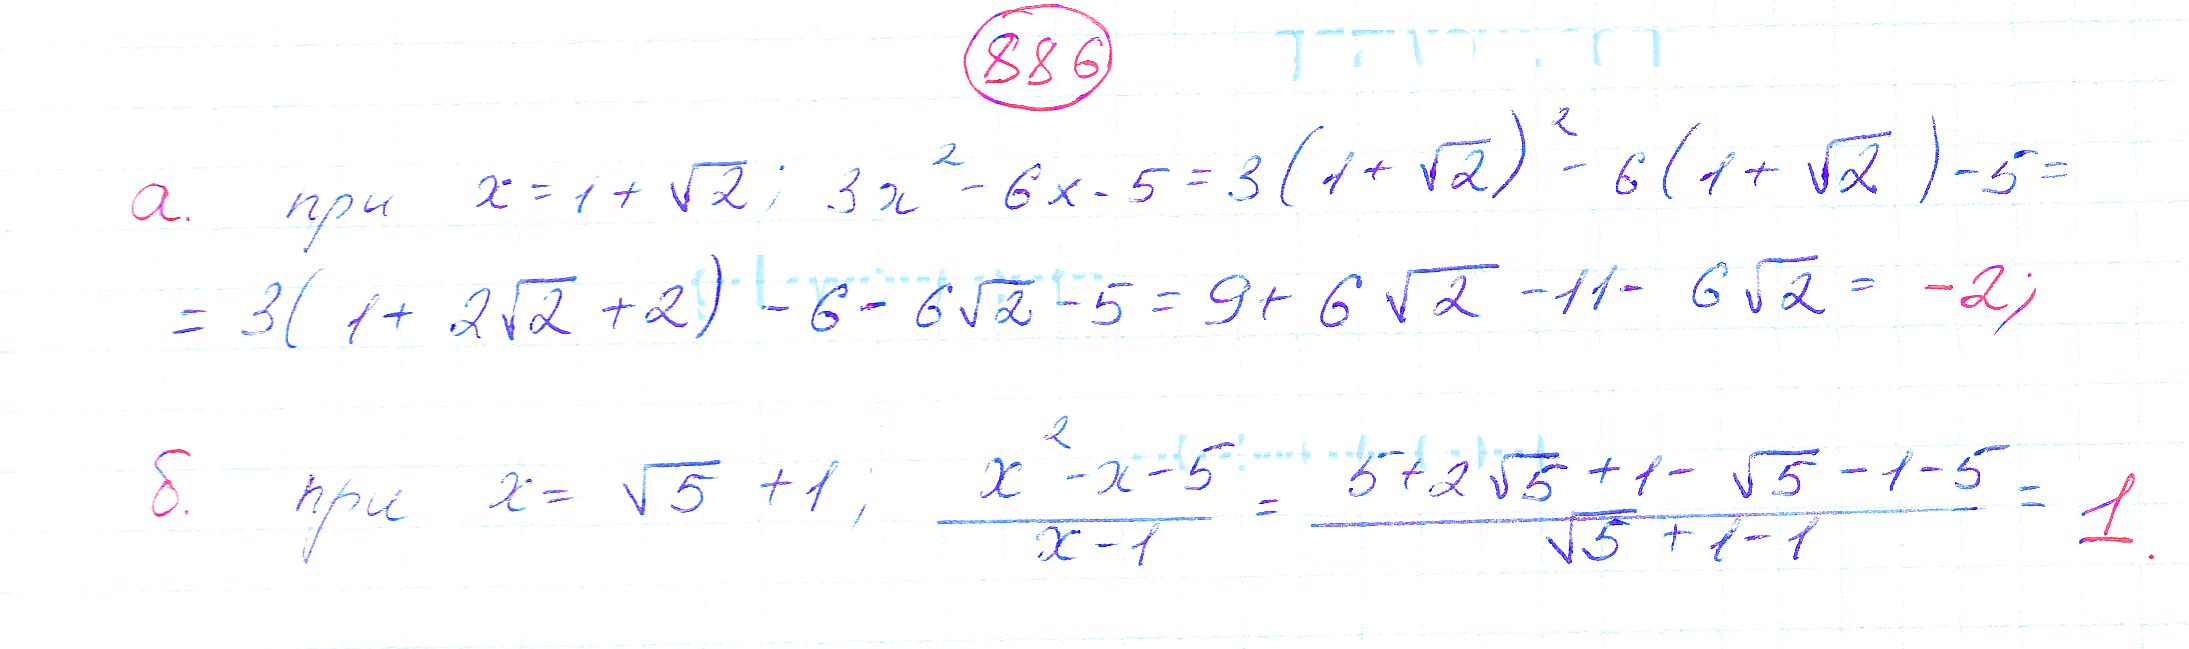 886
а. при x = 1 + √2; 3x² - 6x - 5 = 3(1 + √2)² - 6(1 + √2) - 5 =
= 3(1 + 2√2 + 2) - 6 - 6√2 - 5 = 9 + 6√2 - 11 - 6√2 = -2;
б. при x = √5 + 1; (x² - x - 5)/(x - 1) = (5 + 2√5 + 1 - √5 - 1 - 5)/(√5 + 1 - 1) = 1.